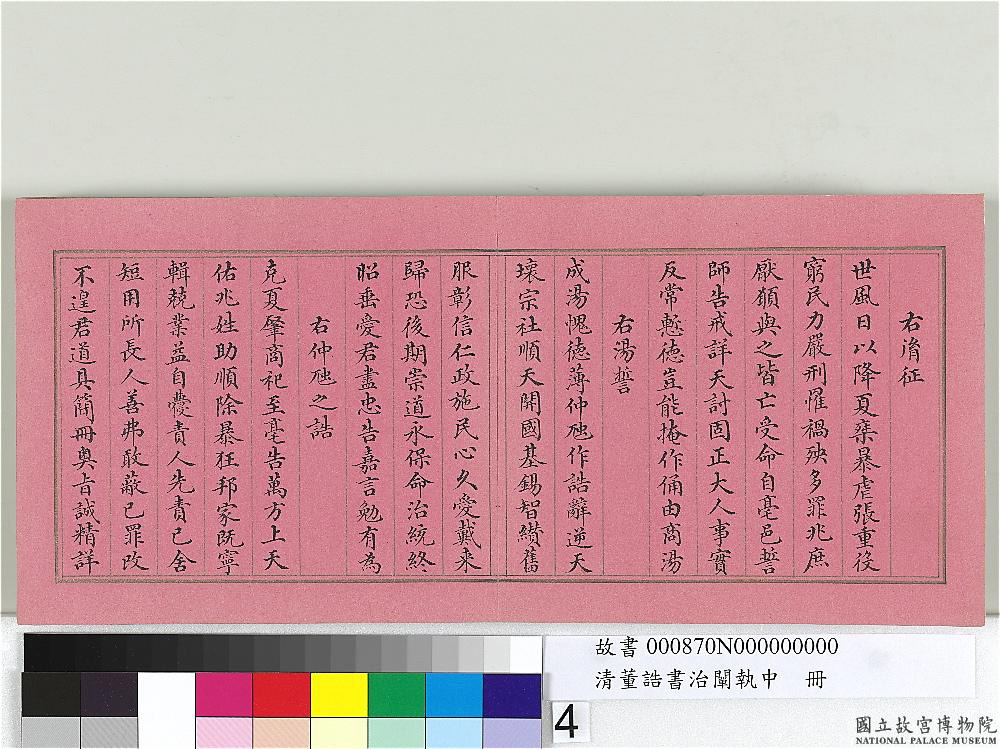 右胤征
世風日以降夏桀暴虐張重役
窮民力嚴刑罹禍殃多罪兆庶
厭願與之皆亡受命自亳邑誓
師告戒詳天討固正大人事實
反常慙德豈能掩作俑由商湯
右湯誓
成湯愧德薄仲虺作誥辭逆天
壞宗社順天開國基錫智纘舊
服彰信仁政施民心久愛戴来
歸恐後期崇道永保命治統終
昭垂愛君盡忠告嘉言勉有為
右仲虺之誥
克夏肇商祀至亳告萬方上天
佑兆姓助順除暴狂邦家既寧
輯兢業益自覺責人先責己舍
短用所長人善弗敢蔽已罪改
不遑君道具簡冊奥旨誠精詳
故書 000870N000000000
清董誥書治闡執中 冊
4
國立故宮博物院
NATIONAL PALACE MUSEUM